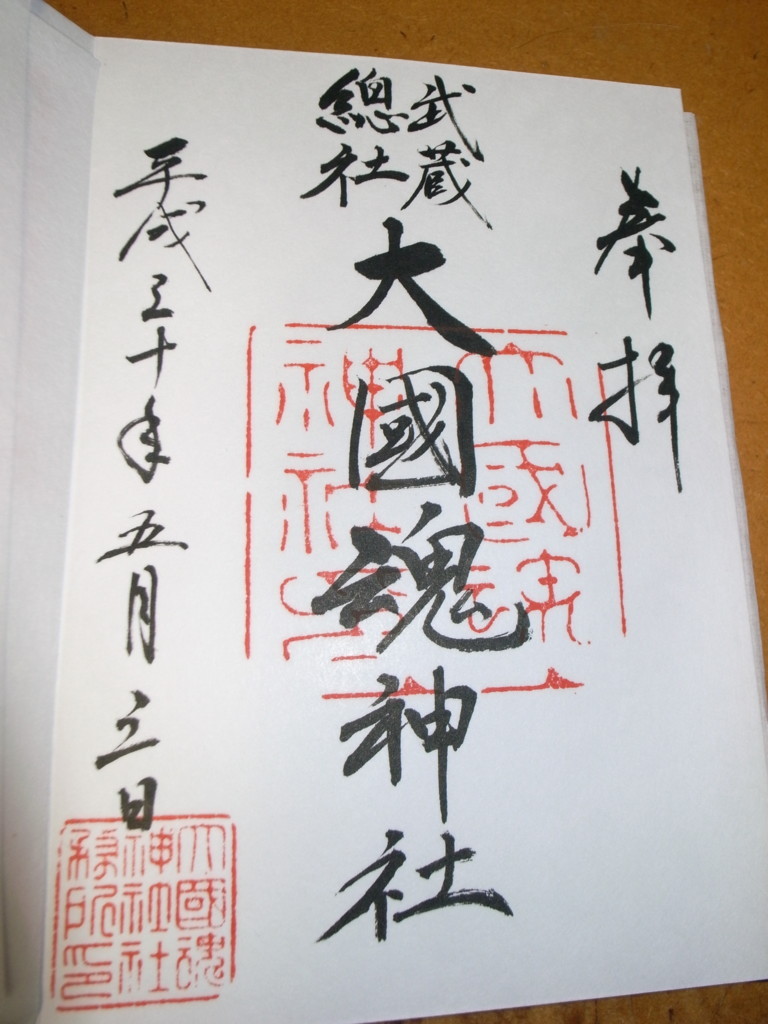 奉拝
武蔵
總社
大國魂神社
平成三十年五月三日
大國魂
神社之印
大國魂
神社社
務所印